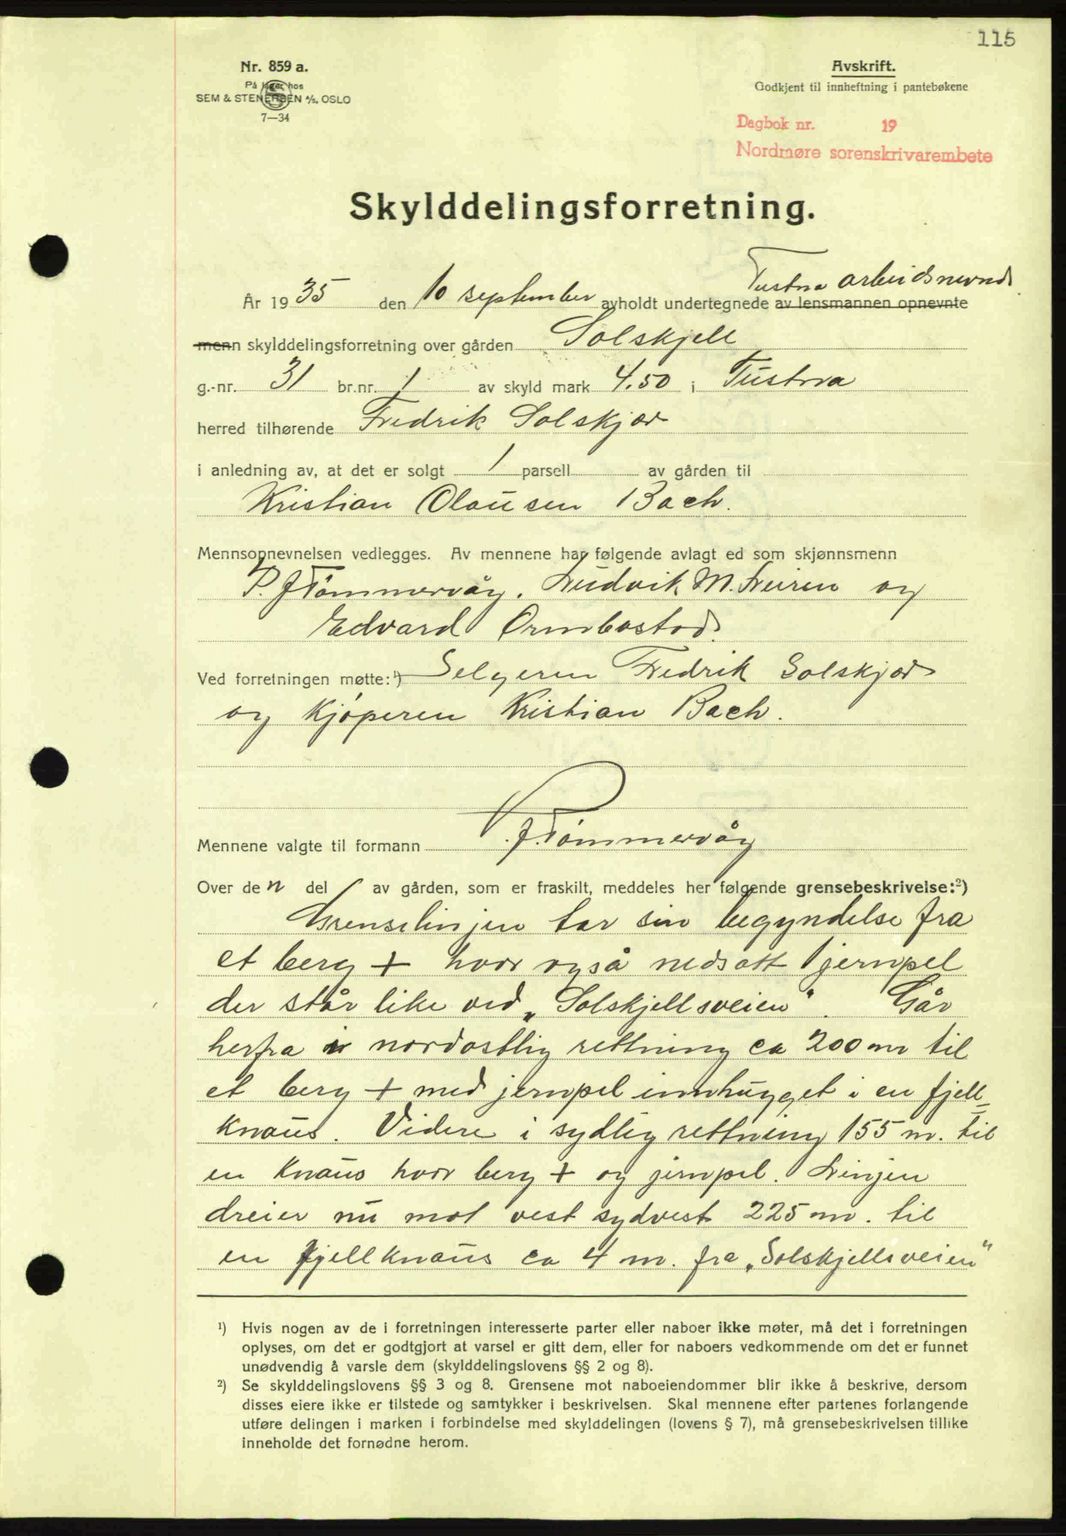 115
Nr. 859 a.
På lager hos
SEM & STENERSEN A/S, OSLO
7—34
Avskrift.
Godkjent til innheftning i pantebøkene
Dagbok nr. 19
Nordmøre sorenskrivarembete
Skylddelingsforretning.
Tustna arbeidsnevnd
År 1935 den 10 september avholdt undertegnede av lensmannen opnevnte
menn skylddelingsforretning over gården Solskjell
g.-nr. 31 br.nr. 1 av skyld mark 4.50 i Tustna
herred tilhørende Fredrik Solskjør
i anledning av, at det er solgt 1 parsell av gården til
Kristian Olausen Bach.
Mennsopnevnelsen vedlegges. Av mennene har følgende avlagt ed som skjønnsmenn
P. J Tömmervåg, Ludvik M. Leiren og
Edvard Ormbostad.
Ved forretningen møtte:¹) Selgeren Fredrik Solskjør
og Kjøperen Kristian Bach.
Mennene valgte til formann P. J. Tömmervåg
Over den del av gården, som er fraskilt, meddeles her følgende grensebeskrivelse:²)
Grenselinjen tar sin begyndelse fra
et berg + hvor også nedsatt 1 jernpel
der står like ved „Solskjellsveien". Går
herfra i nordostlig rettning ca 200 m til
et berg + med jernpel innhugget i en fjell=
knaus. Videre i sydlig rettning 155 m. til
en Knaus hvor berg + og jernpel. Linjen
dreier nu mot vest sydvest 225 m. til
en fjellknaus ca 4 m. fra „Solskjellsveien"
¹) Hvis nogen av de i forretningen interesserte parter eller naboer ikke møter, må det i forretningen
oplyses, om det er godtgjort at varsel er gitt dem, eller for naboers vedkommende om det er funnet
unødvendig å varsle dem (skylddelingslovens §§ 2 og 8).
²) Se skylddelingslovens §§ 3 og 8. Grensene mot naboeiendommer blir ikke å beskrive, dersom
disses eiere ikke er tilstede og samtykker i beskrivelsen. Skal mennene efter partenes forlangende
utføre delingen i marken i forbindelse med skylddelingen (lovens § 7), må grensebeskrivelsen tillike
inneholde det fornødne herom.